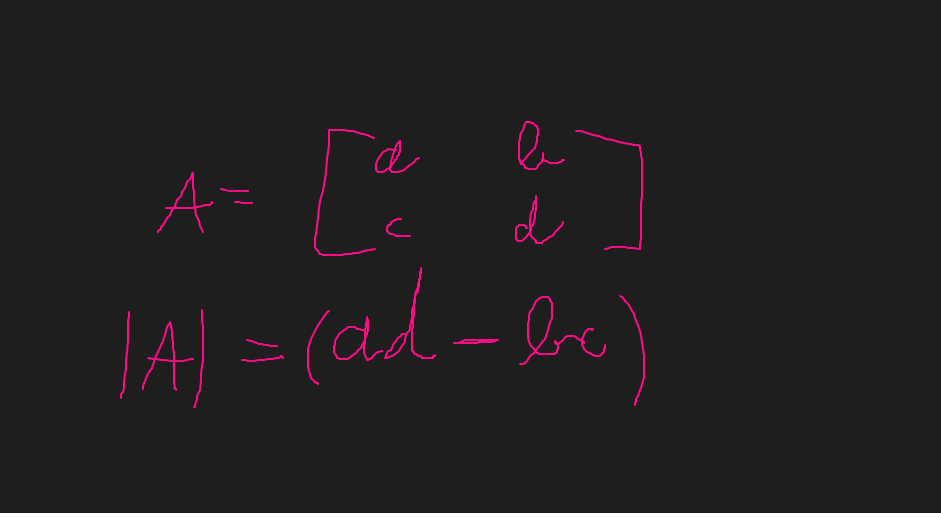 A = [ a b
c d ]
|A| = (ad - bc)